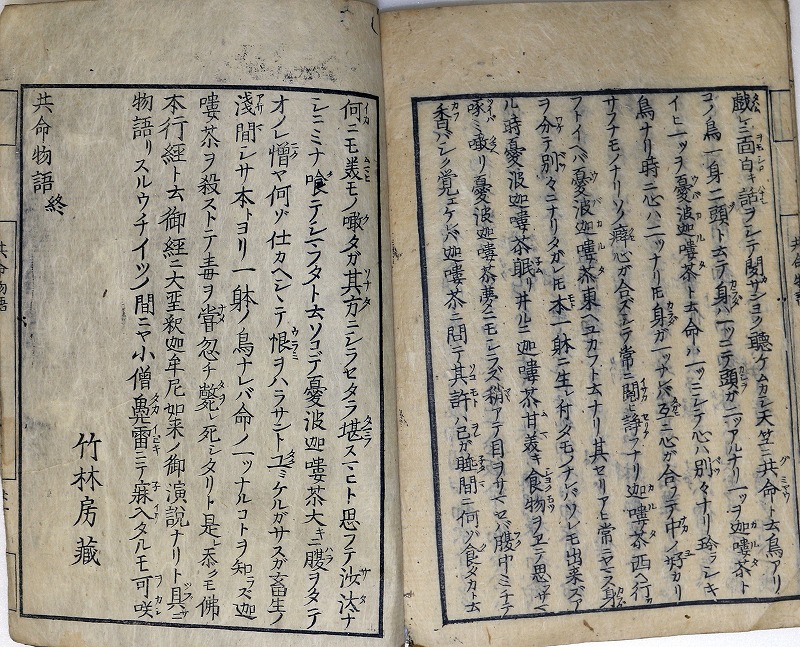 戯ニ三面白キ話ヲシテ聞サンヨク聴ケムカシ天竺ニ共命ト云鳥アリ
コノ鳥一身二頭ト云テ身ハ一ツニテ頭ガ二ツアルナリ一ツヲ迦嘍茶ト
イヒ一ツヲ憂波迦嘍茶ト云命ハ一ツニシテ心ハ別々ナリ珍ラシキ
鳥ナリ時ニ心ハ二ツナリ𪜈身ガ一ツナレバ互ニ心ガ合フテ中ノ好カリ
サフナモノナリソノ癖心ガ合ズシテ常ニ鬩ヒ諍フナリ迦嘍茶西ヘ行
フトイヘバ憂波迦嘍茶東ヘユカフト云ナリ其セリアヒ常ニヤミズ身
ヲ分テ別々ニナリタガレ𪜈本一躰ニ生レ付タモノナレバソレモ出来ズア
ル時憂波迦嘍茶眠リ井ルニ迦嘍茶甘美キ食物ヲヱテ思サマ
啄ミ噉リ憂波迦嘍茶夢ニモシラズ稍アテ目ヲサマセバ腹中ミチテ
香バシク覚エケレバ迦嘍茶ニ問テ其許ハ己ガ睡間ニ何ゾ食タカト云
何ニモ美モノ噉タガ其方ニシラセタラ堪スマヒト思フテ沙汰ナ
シニミナ喰テシマフタト云ソコデ憂波迦嘍茶大キニ腹ヲタテ
オノレ憎ヤ何ゾ仕カヘシシテ恨ヲハラサントユミケルガサスガ畜生ノ
淺間シサ本トヨリ一躰ノ鳥ナレバ命ノ一ツナルコトヲ知ラズ迦
嘍茶ヲ殺ストテ毒ヲ嘗忽チ斃レ死シタリト是レ忝クモ佛
本行經ト云御經ニ大聖釈迦牟尼如来ノ御演説ナリト具ニ
物語リスルウチイツノ間ニヤ小僧鼾雷ニテ寐入タルモ可咲
共命物語終
竹林房藏
共命物語
共命物語